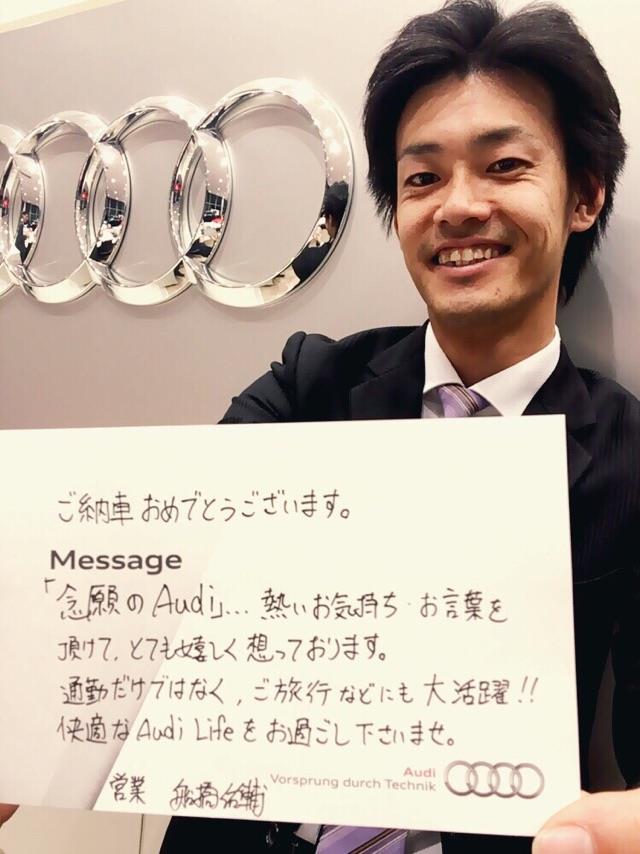 ご納車おめでとうございます。
Message
「念願のAudi」… 熱いお気持ち・お言葉を
頂けて、とても嬉しく想っております。
通勤だけではなく、ご旅行などにも大活躍!!
快適なAudi Lifeをお過ごし下さいませ。
Audi
Vorsprung durch Technik
営業 船橋佑輔